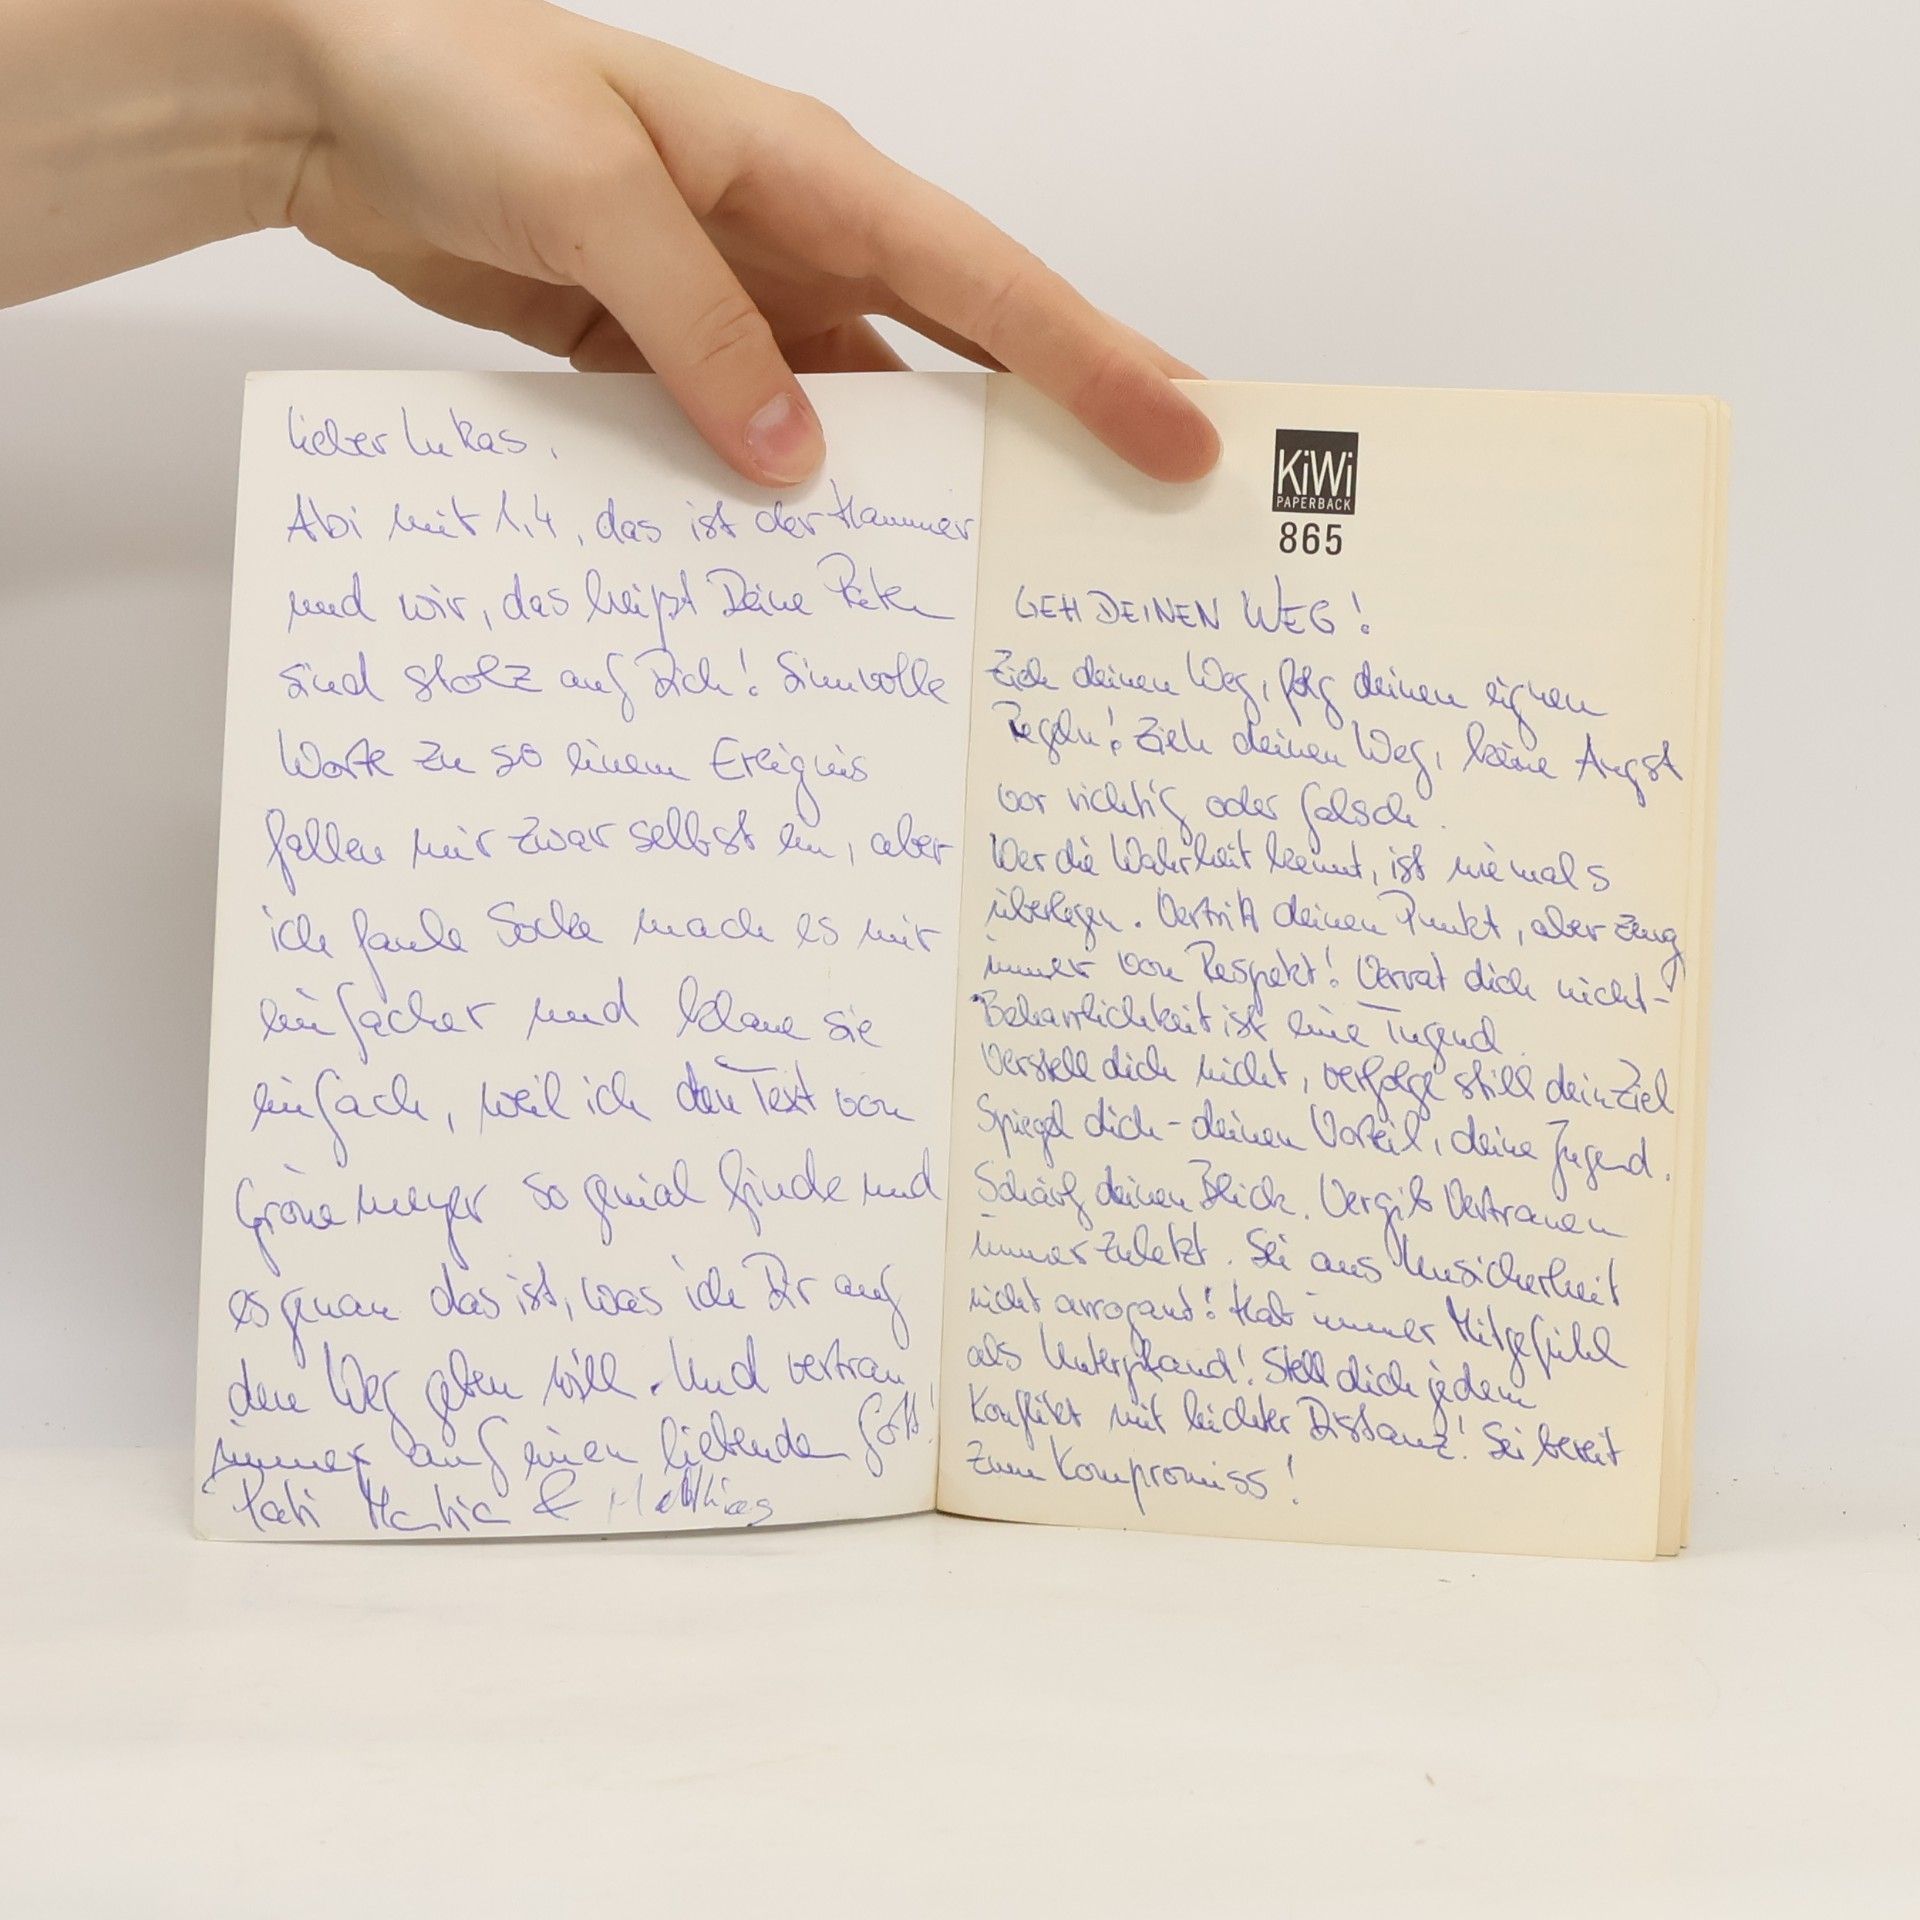 Lieber Lukas,
Abi mit 1,4, das ist der Hammer
und wir, das heißt Deine Paten
sind stolz auf Dich! Sinnvolle
Worte zu so einem Ereignis
fallen mir zwar selbst ein, aber
ich faule Socke mach es mir
einfacher und klaue sie
einfach, weil ich den Text von
Grönemeyer so genial finde und
es genau das ist, was ich Dir auf
den Weg geben will. Und vertrau
immer auf einen liebenden Gott!
Pati & Matthias
KiWi
PAPERBACK
865
GEH DEINEN WEG!
Zieh deinen Weg, folg deinen eignen
Regeln! Zieh deinen Weg, keine Angst
vor richtig oder falsch.
Wer die Wahrheit kennt, ist niemals
überlegen. Vertritt deinen Punkt, aber zeug
immer von Respekt! Verrat dich nicht-
Beharrlichkeit ist eine Tugend.
Verstell dich nicht, verfolge still dein Ziel
Spiegel dich - deinen Vorteil, deine Jugend.
Schärf deinen Blick. Vergib Vertrauen
immer zuletzt. Sei aus Unsicherheit
nicht arrogant! Hab immer Mitgefühl
als Unterpfand! Stell dich jedem
Konflikt mit leichter Distanz! Sei bereit
zum Kompromiss!